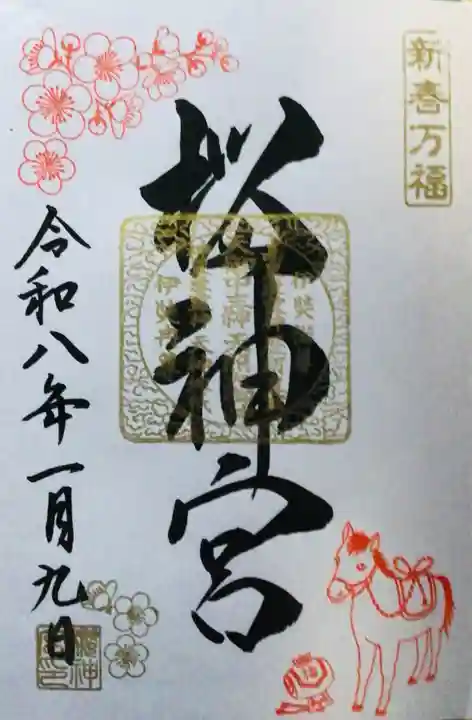 新春万福
桜神宮
令和八年一月九日